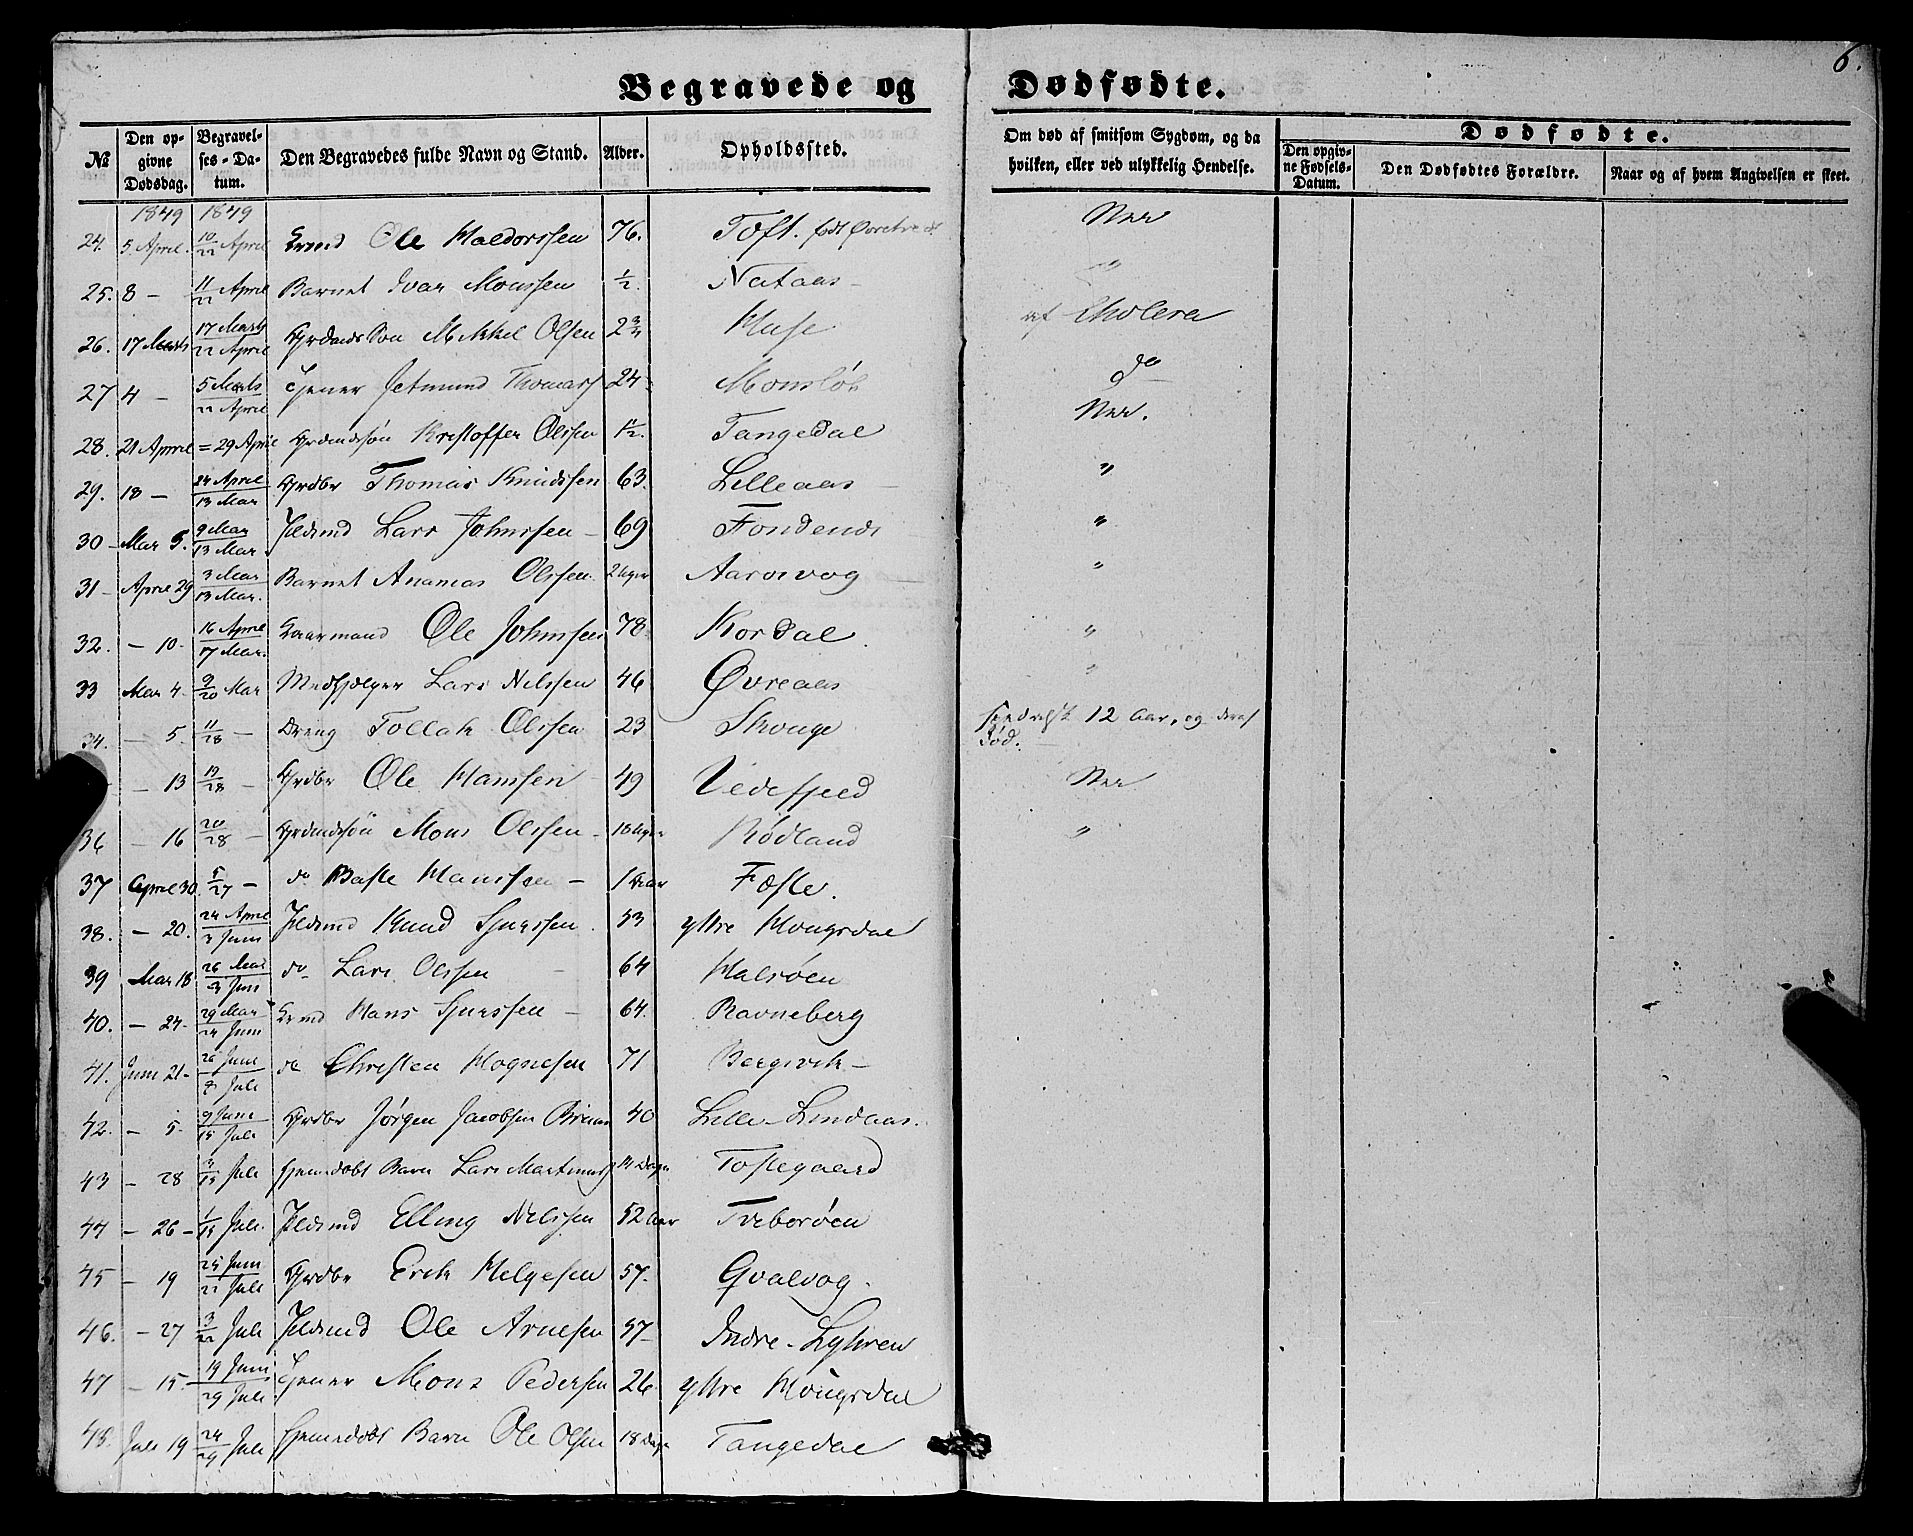 6.
Begravede og Dødfødte.
№ Den opgivne Dødsdag. Begravelses-Datum. Den Begravedes fulde Navn og Stand. Alder. Opholdssted. Om død af smitsom Sygdom, og da hvilken, eller ved ulykkelig Hendelse. Dødfødte.
Den opgivne Fødsels-Datum. Den Dødfødtes Forældre. Naar og af hvem Angivelsen er skeet.
1849 1849
24. 5 April. 10/22 April Ole Haldorssen 76. Toft. født Nei
25. 8 — 11/22 April Barnet Ivar Monssen 1/2. Nataas — "
26. 17 Marts 17 Marts/22 April Grdmds Søn Mikkel Olsen 2 3/4 Huse af Cholera
27 4 — 5 Marts/22 April Tjener Jetmund Thomass 24 Monsløb do
28. 21 April = 29 April Grdmdssøn Kristoffer Olssen 1 1/2. Tangedal Nei.
29. 18 — 24 April/13 Mai Grdbr Thomas Knudssen 63. Lilleaas — "
30 — Mai 5. 9 Mai/13 Mai Ildsmd Lars Johnssen — 69 Fondenes "
31 — April 29 3 Mai/13 Mai. Barnet Ananias Olssen. 2 Uger Aarsvog — "
32. — 10. 16 April/17 Mai. Kaarmand Ole Johnssen 78. Kordal "
33 Mai 4. 9/20 Mai Medhjælper Lars Nilssen 46 Øvreaas "
34. — 5. 11/28 — Dreng Tollak Olssen 23 Skouge 12 Aar, og deraf død.
— 13 19/28 — Grdbr Ole Hanssen — 49 Vedefjeld Nei
36 — 16 20/28 — Grdmdssøn Mons Olssen — 18 Uger Rødland "
37 April 30. 5/27 — do Baste Hanssen — 1 Aar Foste.
38. — 20. 24 April/3 Juni Ildsmd Knud Sjurssen . 53 yttre Hougsdal
39 Mai 18 26 Mai/3 Juni do Lars Olssen — 64 Halsøen
40. — 24. 29 Mai/24 Juni Hans Sjurssen — 64. Ravneberg
41. Juni 21 — 26 Juni/8 Juli do Christen Mognesen 71 Bergsvik —
42. — 5. 9 Juni/15 Juli Grdbr Jørgen Jacobsen 40 Lille-Lindaas.
43 — 28 3/15 Juli Hjemedøbt Barn Lars Martinus 14 Dage Toftegaard
44 — 26 — 1/15 Juli. Ildsmd Elling Nilssen 52 Aar Treborøen
45 — 19 25 Juni/22 Juli Grdbr Erik Helgesen 57. Qvalvog.
46. — 27 3/22 Juli Ildsmd Ole Arnesen 57 Indre-Lyhren
47 — 15 19 Juni/29 Juli Tjener Mons Pedersen 26 yttre Hougsdal
48. Juli 19 24/29 Juli Hjemedøbt Barn Ole Olsen 18 Dage Tangedal